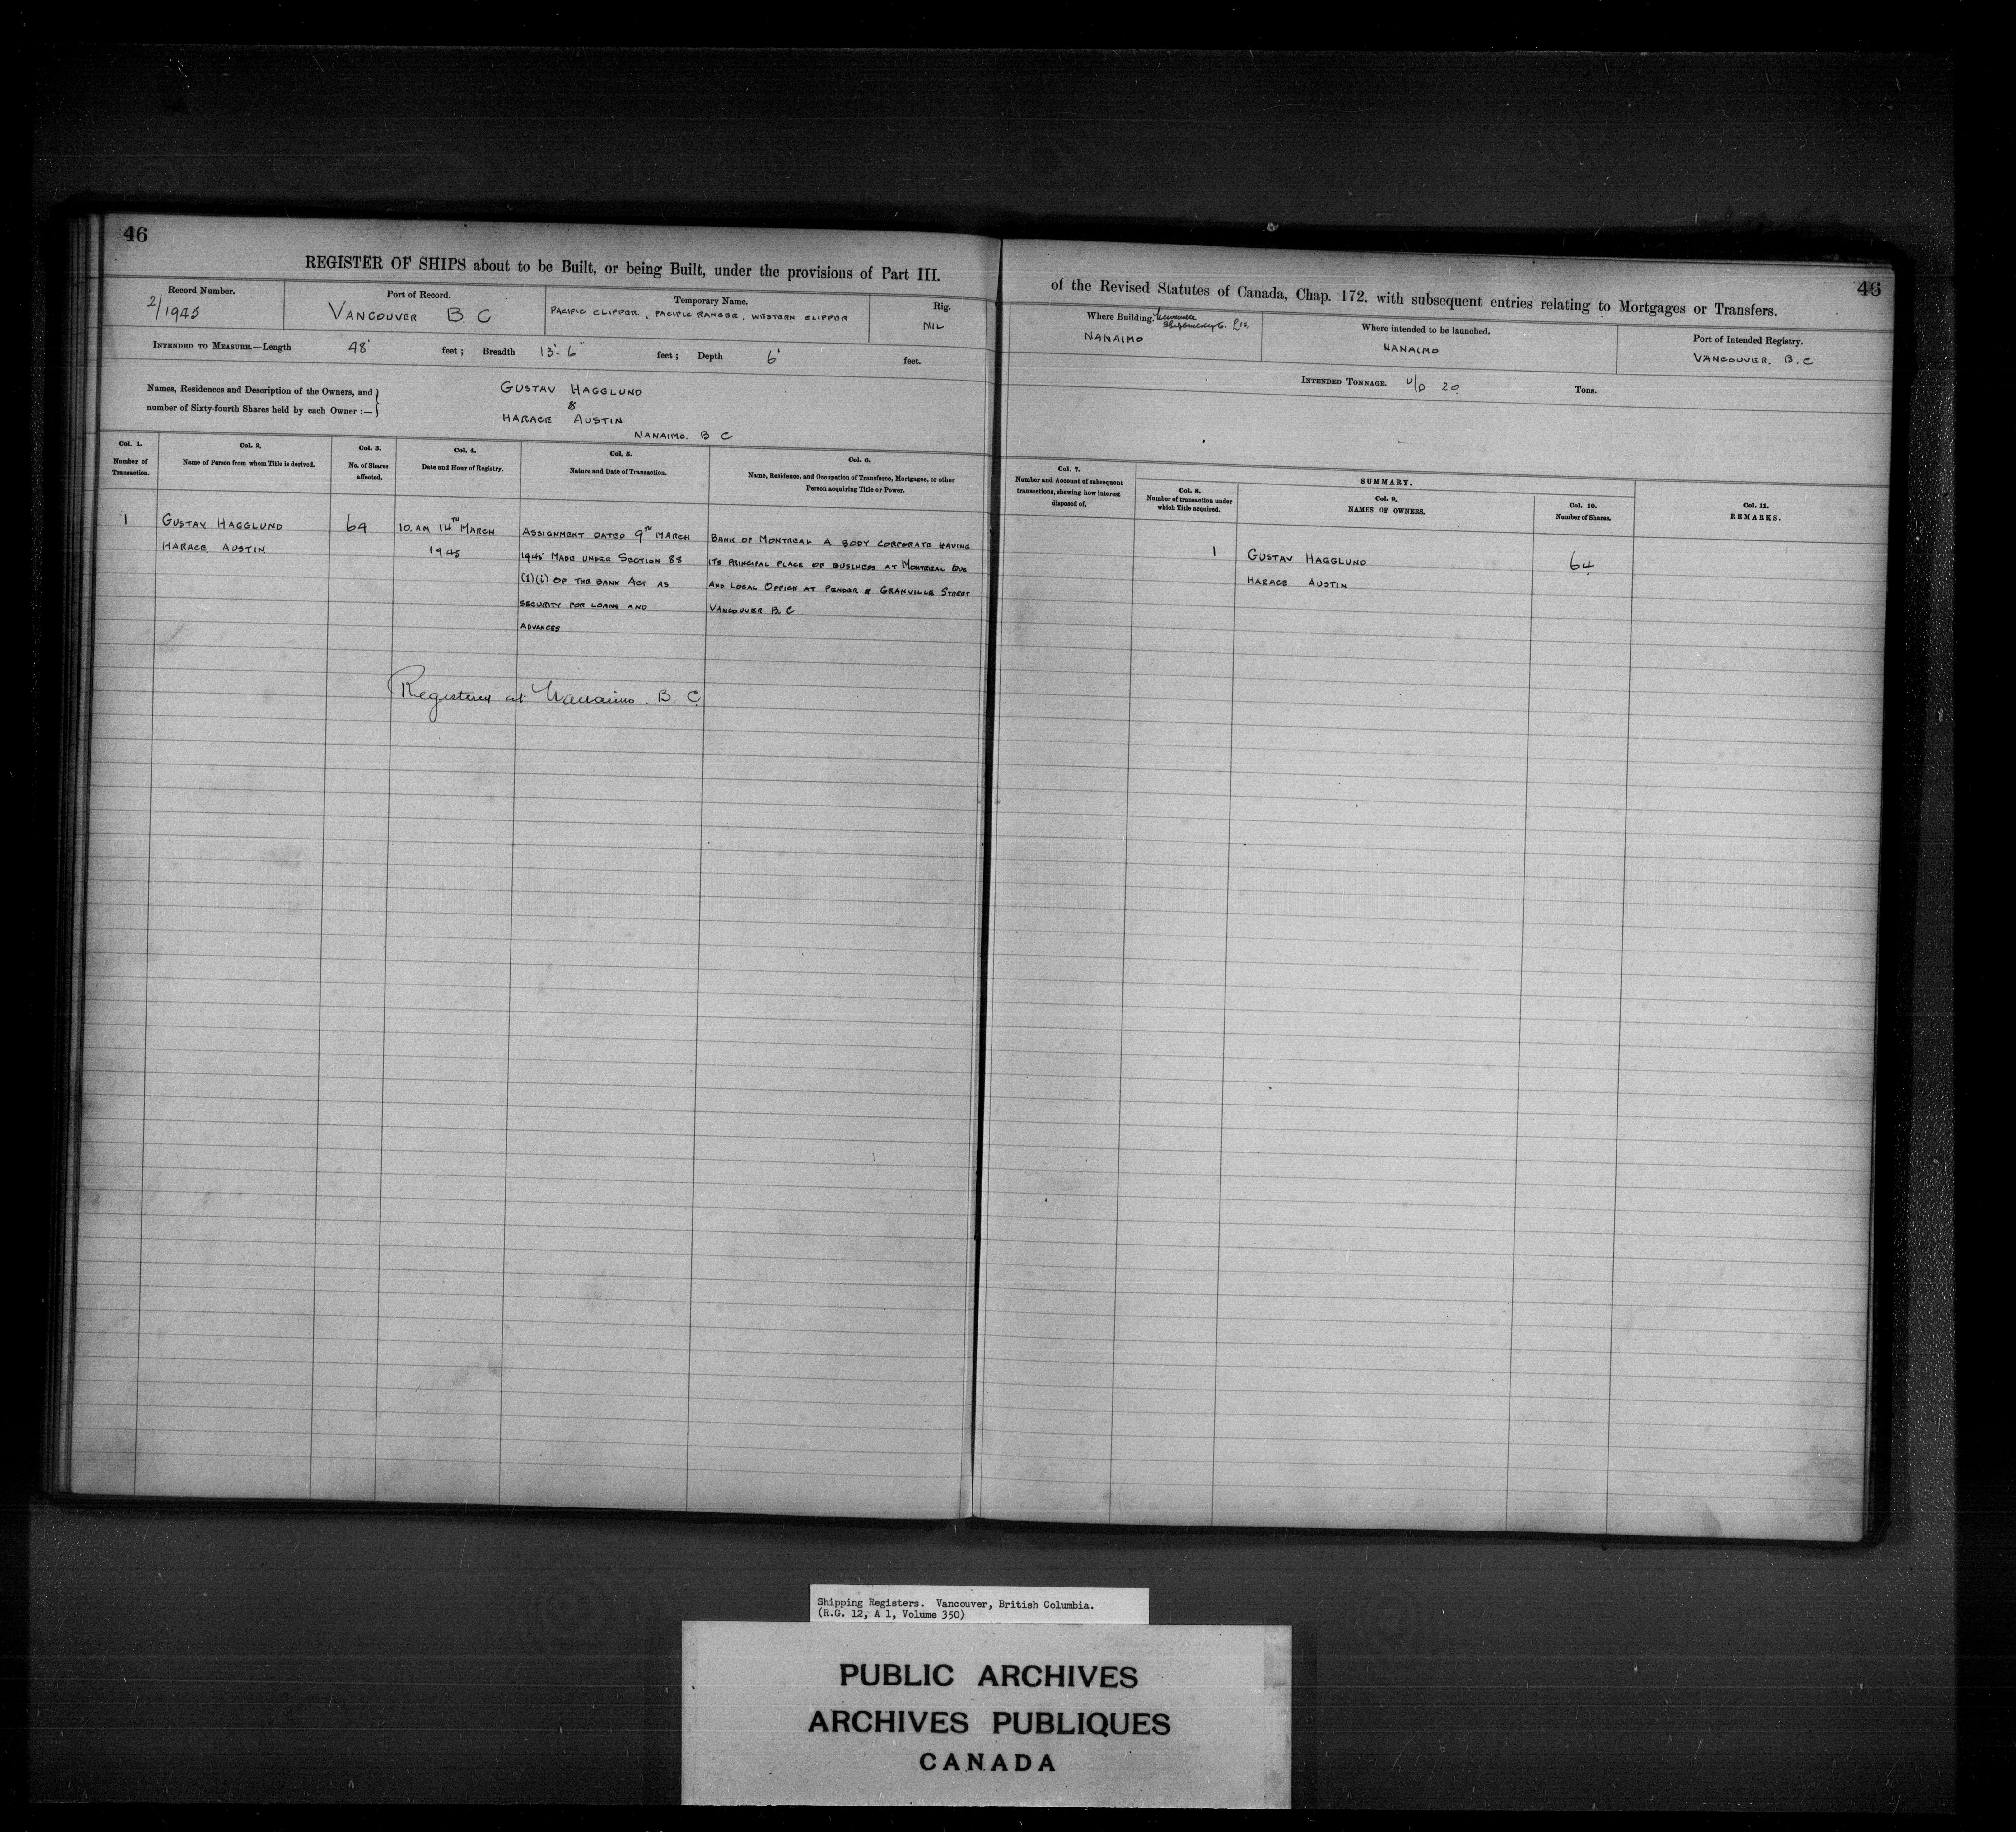 46
REGISTER OF SHIPS about to be Built, or being Built, under the provisions of Part III.
Record Number.
2/1945
Port of Record.
VANCOUVER B. C
Temporary Name.
PACIFIC CLIPPER, PACIFIC RANGER, WESTERN CLIPPER
Rig.
NIL
INTENDED TO MEASURE.—Length 48' feet; Breadth 13'-6" feet; Depth 6' feet.
Names, Residences and Description of the Owners, and
number of Sixty-fourth Shares held by each Owner :—
GUSTAV HAGGLUND
&
HARACE AUSTIN
NANAIMO. B C
Col. 1.
Number of
Transaction.
Col. 2.
Name of Person from whom Title is derived.
Col. 3.
No. of Shares
affected.
Col. 4.
Date and Hour of Registry.
Col. 5.
Nature and Date of Transaction.
Col. 6.
Name, Residence, and Occupation of Transferee, Mortgagee, or other
Person acquiring Title or Power.
1
GUSTAV HAGGLUND
HARACE AUSTIN
64
10. AM 14TH MARCH
1945
ASSIGNMENT DATED 9TH MARCH
1945 MADE UNDER SECTION 88
(1)(i) OF THE BANK ACT AS
SECURITY FOR LOANS AND
ADVANCES
BANK OF MONTREAL A BODY CORPORATE HAVING
ITS PRINCIPAL PLACE OF BUSINESS AT MONTREAL QUE
AND LOCAL OFFICE AT PENDER & GRANVILLE STREET
VANCOUVER B. C
Registered at Nanaimo. B. C.
46
of the Revised Statutes of Canada, Chap. 172. with subsequent entries relating to Mortgages or Transfers.
Where Building.
NANAIMO
Where intended to be launched.
NANAIMO
Port of Intended Registry.
VANCOUVER. B. C
INTENDED TONNAGE. U/D 20 Tons.
Col. 7.
Number and Account of subsequent
transactions, shewing how interest
disposed of.
SUMMARY.
Col. 8.
Number of transaction under
which Title acquired.
Col. 9.
NAMES OF OWNERS.
Col. 10.
Number of Shares.
Col. 11.
REMARKS.
1
GUSTAV HAGGLUND
HARACE AUSTIN
64
Shipping Registers. Vancouver, British Columbia.
(R.G. 12, A 1, Volume 350)
PUBLIC ARCHIVES
ARCHIVES PUBLIQUES
CANADA